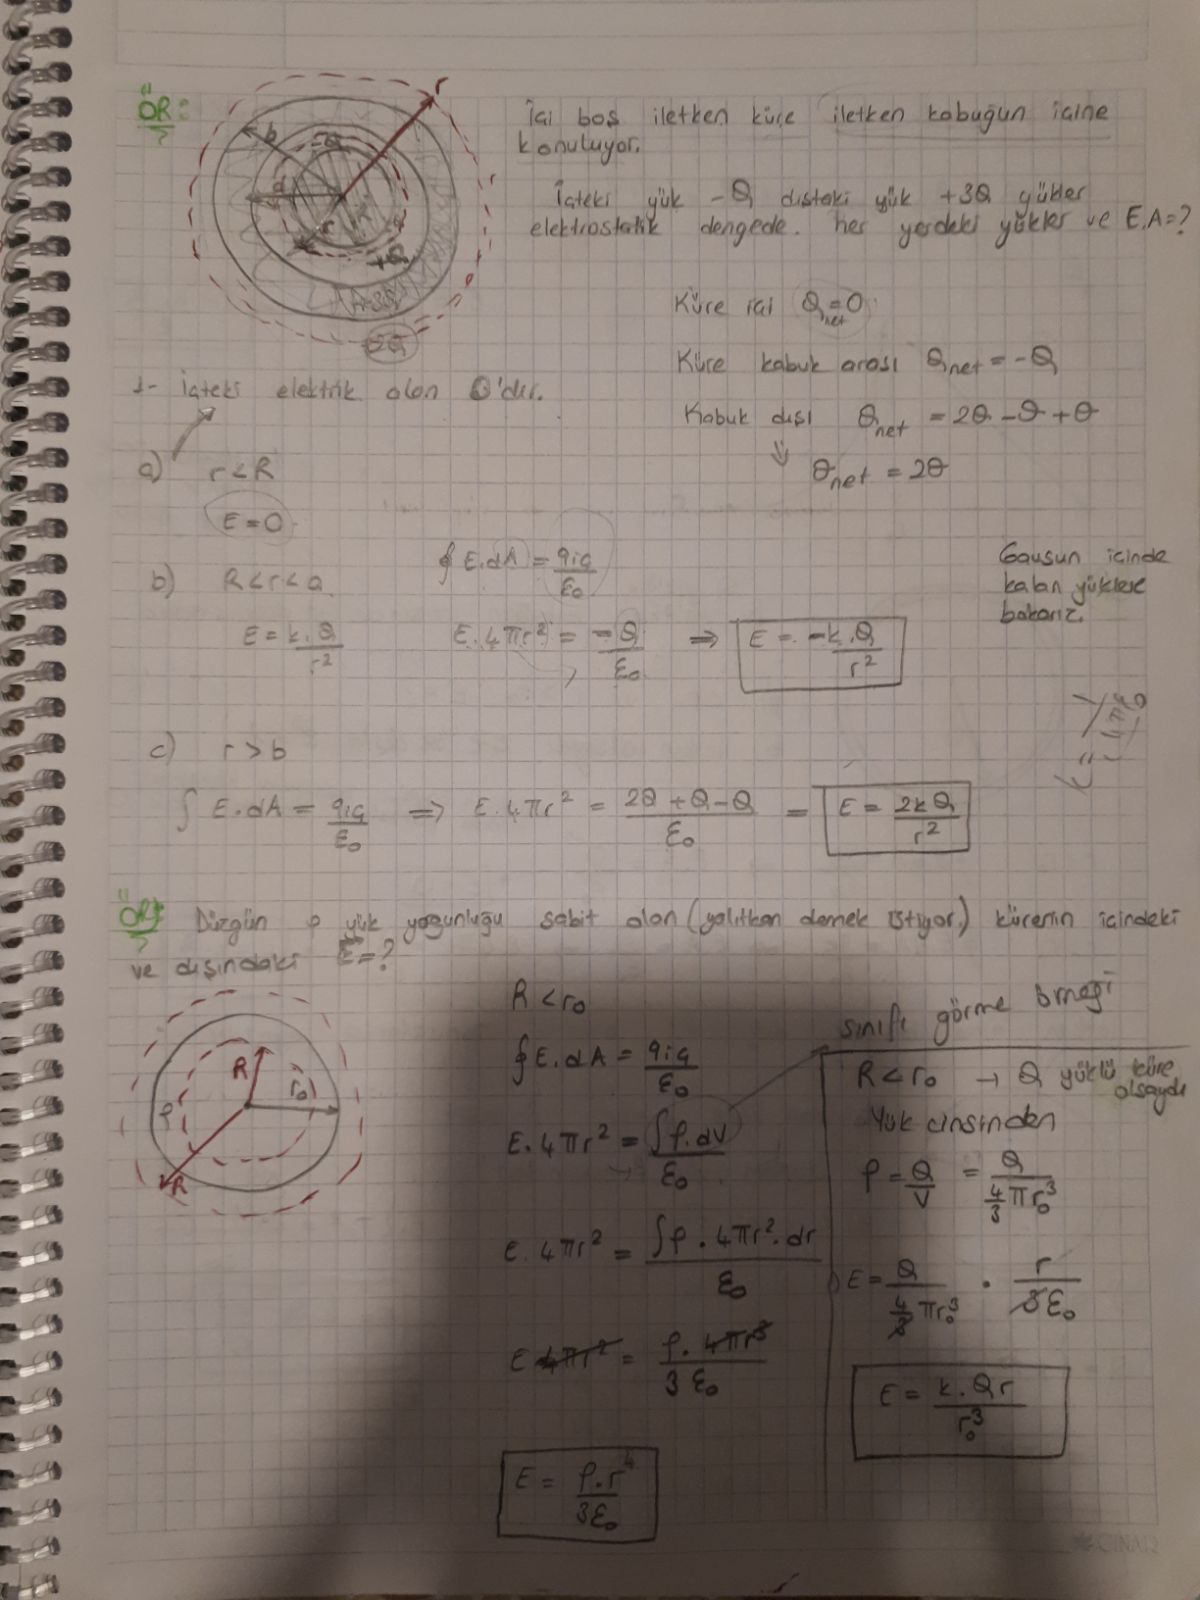 ÖR:
İçi boş iletken küre iletken kabuğun içine
konuluyor.
İçteki yük -Q dıştaki yük +3Q yükler
elektrostatik dengede. her yerdeki yükler ve E.A=?
r
b
-Q
a
R
r
+Q
+3Q
2Q
Küre içi Qnet = 0
Küre kabuk arası Qnet = -Q
Kabuk dışı Qnet = 2Q - Q + Q
Qnet = 2Q
1- İçteki elektrik alan 0'dır.
a) r < R
E = 0
b) R < r < a
∮ E.dA = qiç/ε₀
Gausun içinde
kalan yüklere
bakarız.
E = k.Q/r² E.4πr² = -Q/ε₀ ⇒ E = -k.Q/r²
k = 1/4πε₀
c) r > b
∫ E.dA = qiç/ε₀ ⇒ E.4πr² = 2Q+Q-Q/ε₀ = E = 2kQ/r²
ÖR: Düzgün ρ yük yoğunluğu sabit olan (yalıtkan demek istiyor.) kürenin içindeki
ve dışındaki E=?
R
r₀
ρ
R
R < r₀
∮ E.dA = qiç/ε₀
E.4πr² = ∫ρ.dV/ε₀
E.4πr² = ∫ρ.4πr².dr/ε₀
E 4πr² = ρ.4πr³/3ε₀
E = ρ.r/3ε₀
sınıfı görme örneği
R < r₀ → Q yüklü küre
olsaydı
Yük cinsinden
ρ = Q/V = Q/4/3πr₀³
E = Q/4/3πr₀³ · r/3ε₀
E = k.Qr/r₀³
ÇINAR